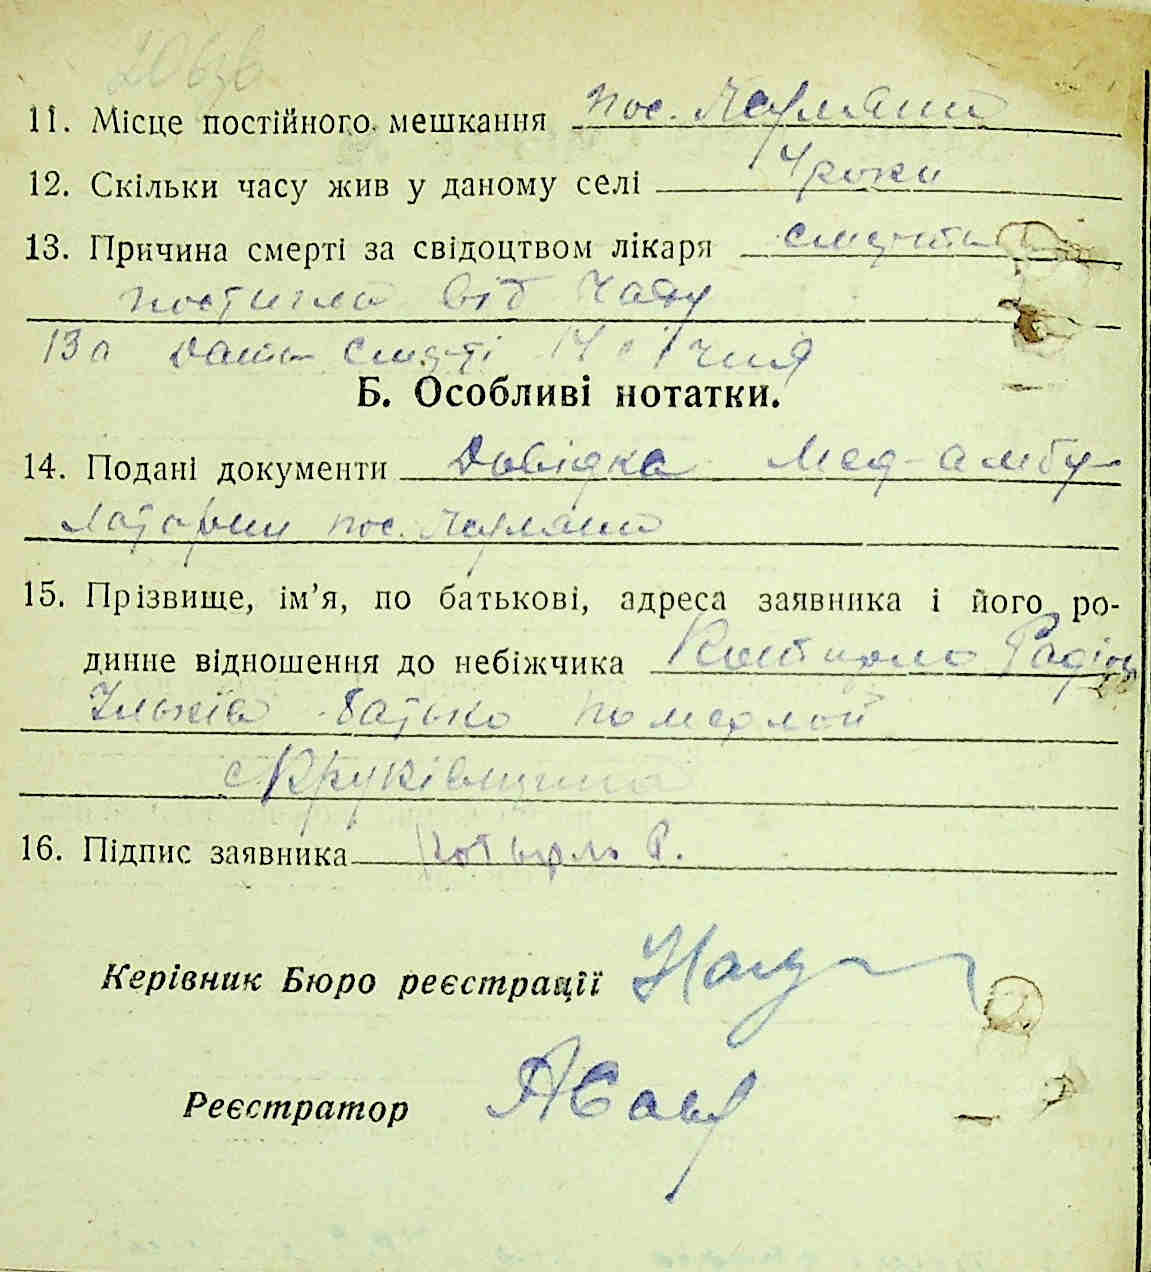 11. Місце постійного мешкання пос. Чармяни
12. Скільки часу жив у даному селі 4 роки
13. Причина смерті за свідоцтвом лікаря смерть
постигла від чаду
13 а Дата смерті 14 січня
Б. Особливі нотатки.
14. Подані документи Довідка Мед-амбу-
латории пос.
15. Прізвище, ім’я, по батькові, адреса заявника і його ро-
динне відношення до небіжчика Радіон
батько померлой
с Круківщина
16. Підпис заявника Р.
Керівник Бюро реєстрації
Реєстратор